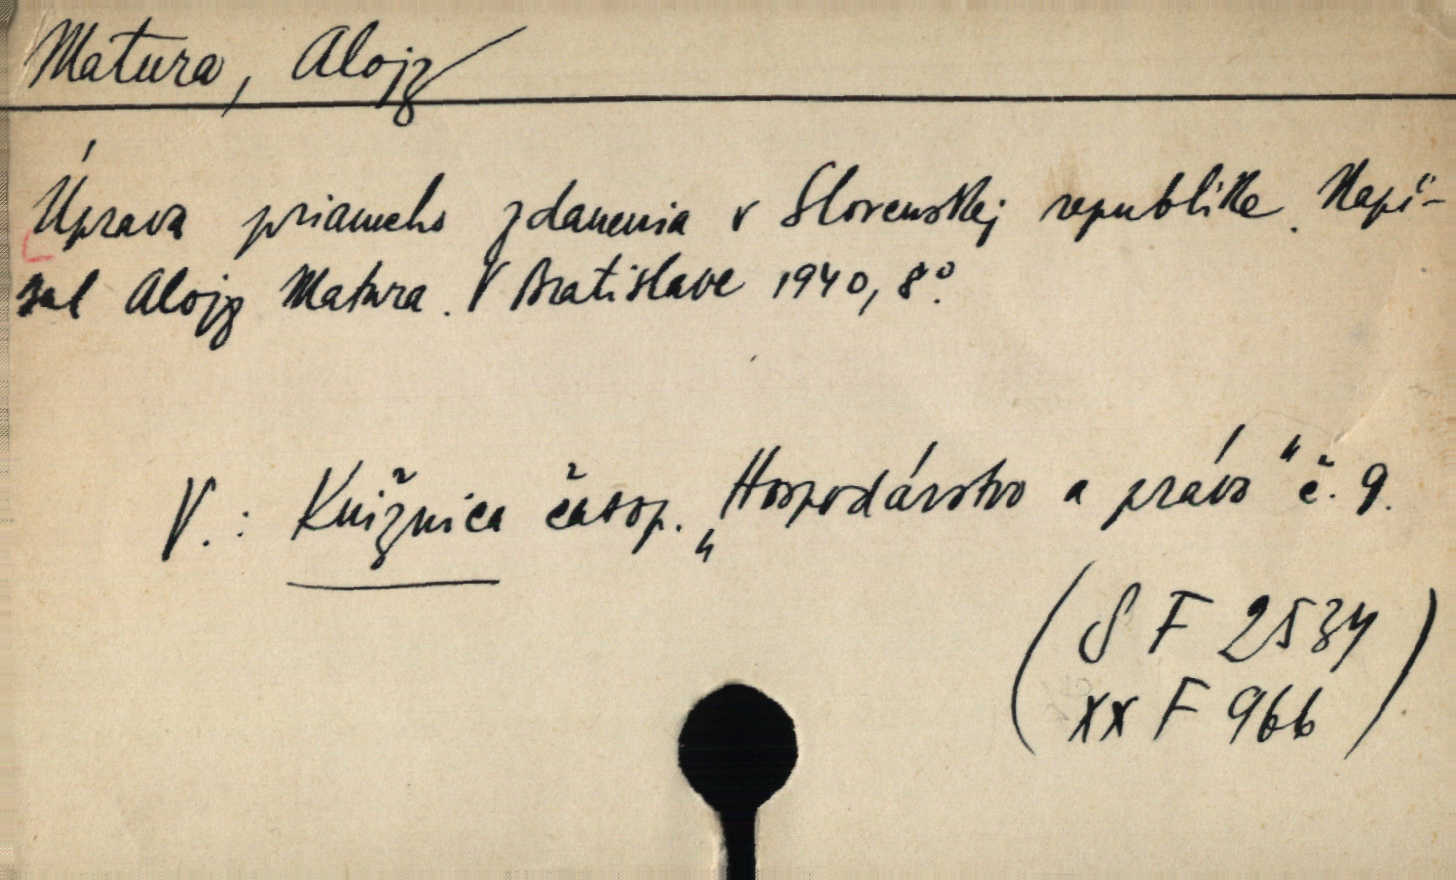 Matura, Alojz
Úprava priameho zdanenia v Slovenskej republike. Napí-
sal Alojz Matura. V Bratislave 1940, 8°.
V.: Knižnica časop. „Hospodárstvo a právo“ č. 9.
(S F 2534
xx F 966)